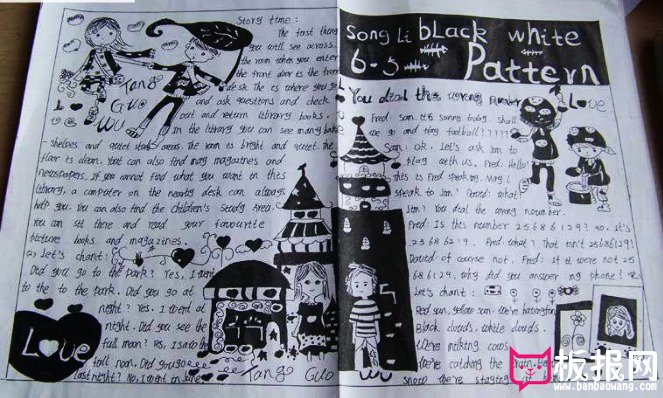 Story time:
The first thing
you will see across
the room when you enter
the front door is the front
desk. this is where you
and ask questions and check
out and return library books.
In the library you can see many books
shelves and areas. The room is bright and quiet. The
floor is clean. You can also find many magazines and
newspapers. If you cannot find what you want in this
library, a computer on the nearby desk can always
help you. You can also find the children's Study Area.
You can sit there and read your favourite
picture books and magazines.
(2) Let's chant:
Did you go to the park? Yes, I went
to the to the park. Did you go at
night? Yes. I went at
night. Did you see the
full moon? Yes, I saw the
full moon. Did you go
last night? No, I went on June
Tang
Guo
Wu
Love
Tang Guo Wu
Song Li black white
6-5 Pattern
You dial the wrong number
Love
Fred: Sam it's sunny today. Shall
we go and play football????
Sam: OK. Let's ask Jim to
play with us. Fred: Hello!
this is Fred speaking. May I
speak to Jim? David: what!
Jim? You dial the wrong number.
Fred: Is this number 25686129? No. It's
25686219. Fred: what? That isn't 25686129!
David: of course not. Fred: If it were not 25
686129, why did you answer my phone?
Let's chant:
Red sun, yellow sun. We're having fun
Black clouds, white clouds.
We're milking cows.
We're catching the train.
snow they're staying at
板报网
www.banbaowang.com